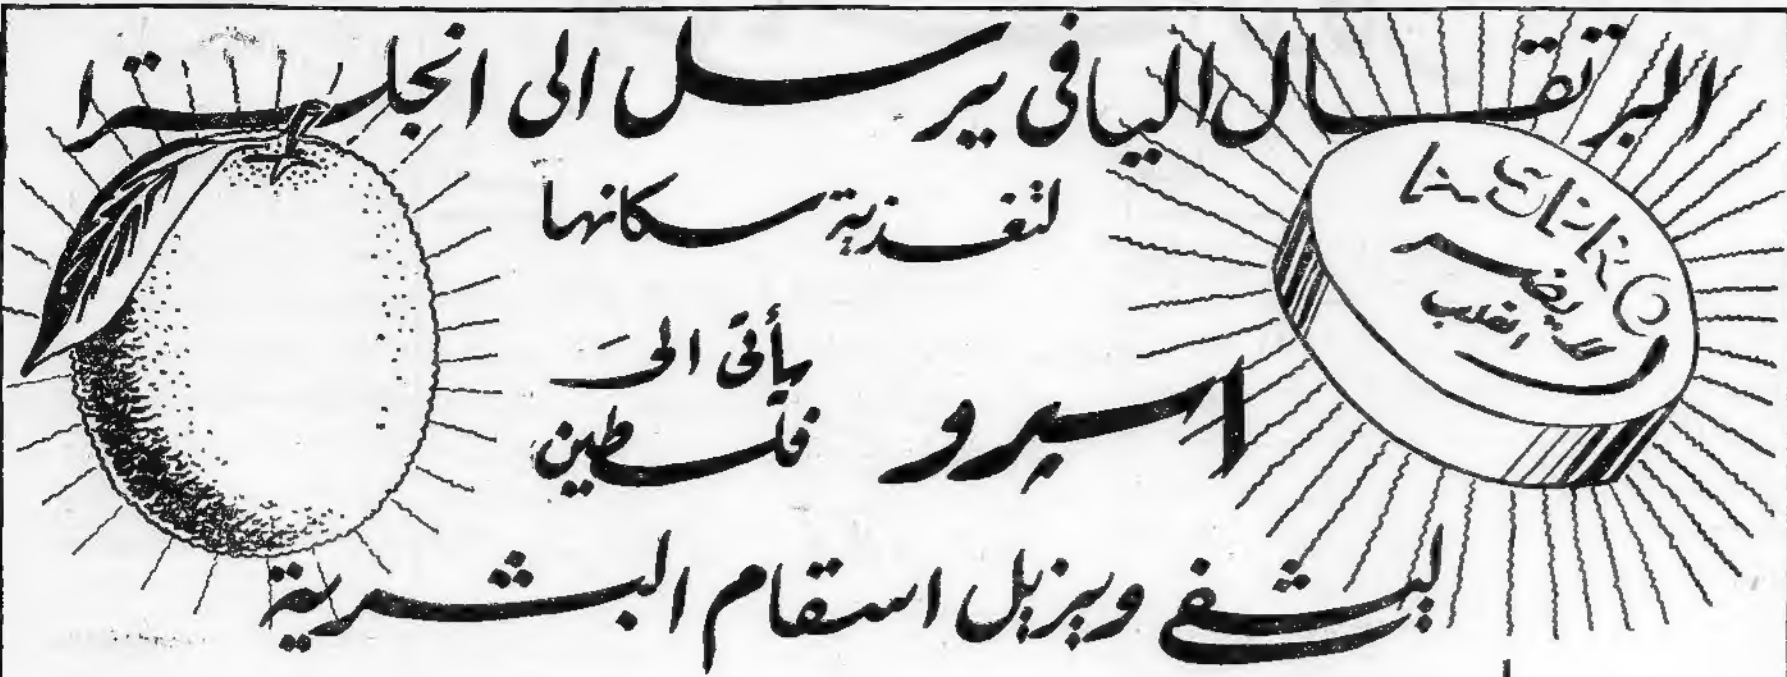 البرتقال اليافي يرسل الى انجلترا
لتغذية سكانها
ASPRO
لا يضر
القلب
اسبرو
يأتي الى
فلسطين
ليشفي ويزيل اسقام البشرية